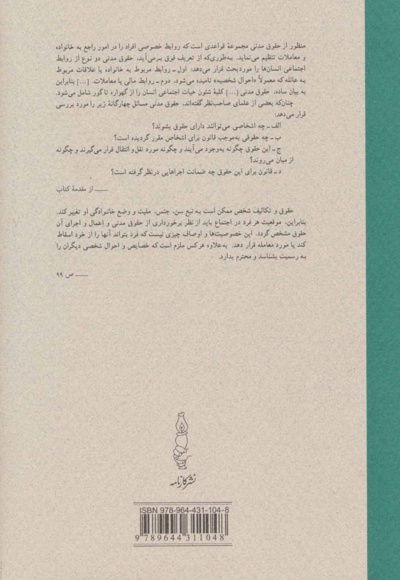 منظور از حقوق مدنی مجموعهٔ قواعدی است که روابط خصوصی افراد را در امور راجع به خانواده
و معاملات تنظیم می‌نماید. به‌طوری‌که از تعریف فوق برمی‌آید، حقوق مدنی دو نوع از روابط
اجتماعی انسان‌ها را مورد بحث قرار می‌دهد: اول ـ روابط مربوط به خانواده یا علاقات مربوط
به عائله که معمولاً «احوال شخصیه» نامیده می‌شود. دوم ـ روابط مالی یا معاملات. [...] بنابراین
به بیان ساده، حقوق مدنی [...] کلیهٔ شئون حیات اجتماعی انسان را از گهواره تا گور شامل می‌شود.
چنان‌که بعضی از علمای صاحب‌نظر گفته‌اند، حقوق مدنی مسائل چهارگانهٔ زیر را مورد بررسی
قرار می‌دهد:
الف ـ چه اشخاصی می‌توانند دارای حقوق بشوند؟
ب ـ چه حقوقی به‌موجب قانون برای اشخاص مقرر گردیده است؟
ج ـ این حقوق چگونه به‌وجود می‌آیند و چگونه مورد نقل‌وانتقال قرار می‌گیرند و چگونه
از میان می‌روند؟
د ـ قانون برای این حقوق چه ضمانت اجراهایی در نظر گرفته است؟
ـــــ از مقدمهٔ کتاب
حقوق و تکالیف شخص ممکن است به تبع سن، جنس، ملیت و وضع خانوادگی او تغییر کند.
بنابراین، موقعیت هر فرد در اجتماع باید از نظر برخورداری از حقوق مدنی و اعمال و اجرای آن
حقوق مشخص گردد. این خصوصیت‌ها و اوصاف چیزی نیست که فرد بتواند آنها را از خود اسقاط
کند یا مورد معامله قرار دهد. به‌علاوه هرکس ملزم است که خصایص و احوال شخصی دیگران را
به رسمیت بشناسد و محترم بدارد.
ـــــ ص ۹۹
نشر کارنامه
ISBN 978-964-431-104-8
9789644311048